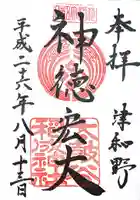 奉拝
津和野
神徳宏大
平成二十六年八月十三日